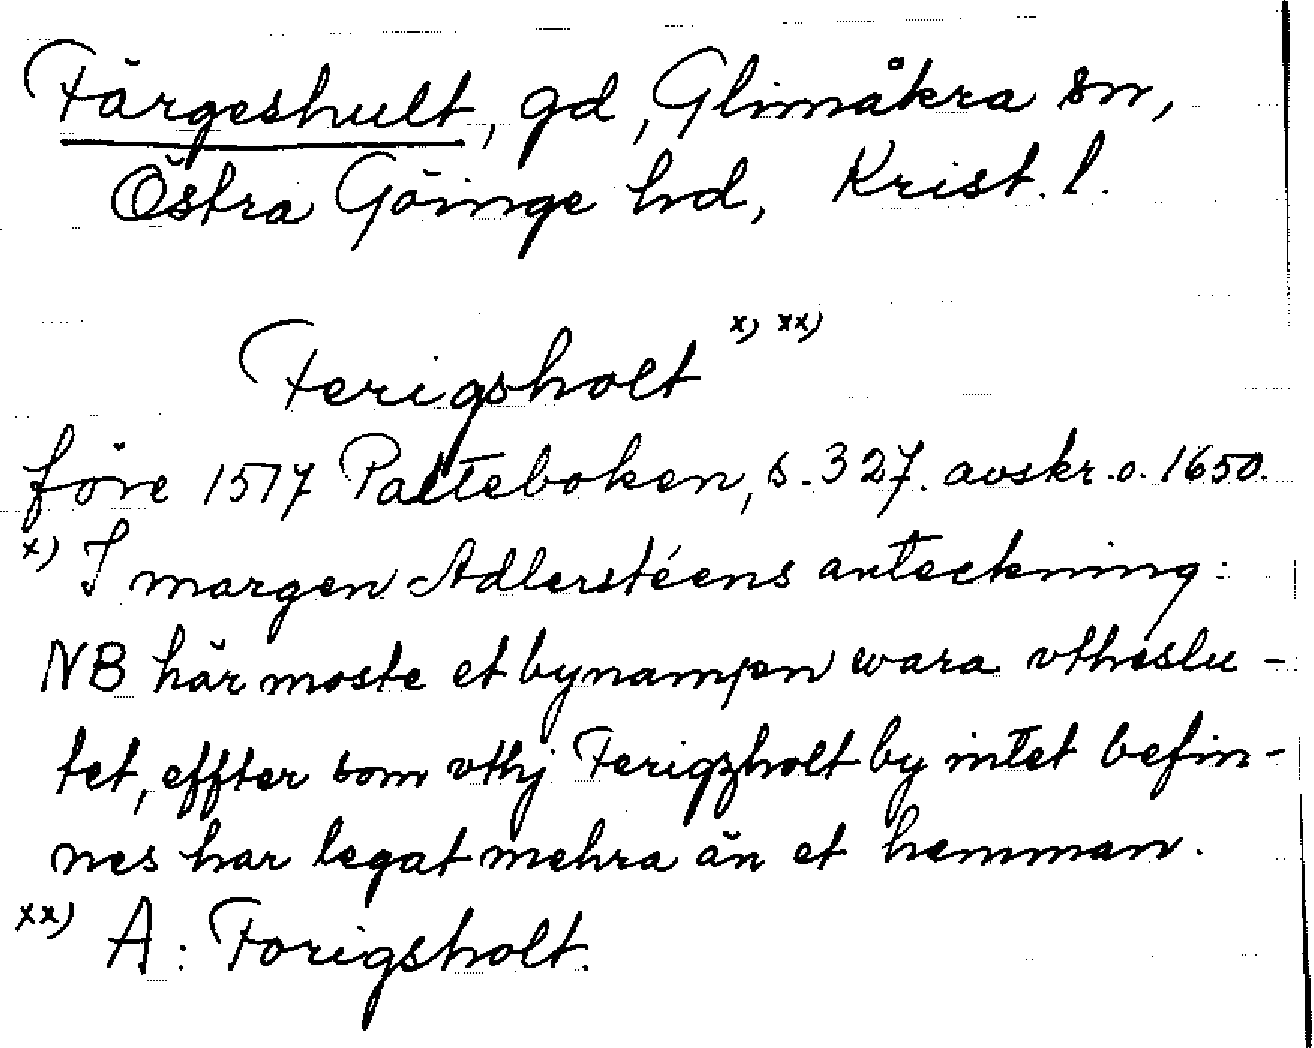 Färgeshult, gd, Glimåkra sn,
Östra Göinge hd, Krist. l.
Ferigsholt x) xx)
före 1517 Palteboken, s. 327. avskr. o. 1650.
x) I margen Adlerstéens anteckning:
NB här moste et bynampn wara vtheslu-
tet, effter som vthj Ferigzholt by intet befin-
nes har legat mehra än et hemman.
xx) A: Forigsholt.